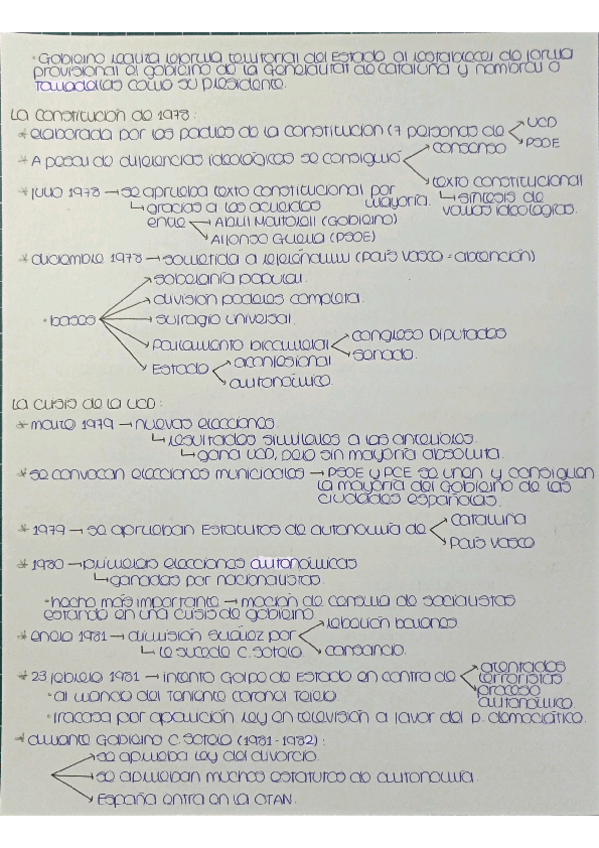 · Gobierno realiza reforma territorial del Estado al restablecer de forma
provisional el gobierno de la Generalitat de Cataluña y nombrar a
Tarradellas como su presidente.
La Constitución de 1978:
* elaborada por los padres de la constitución (7 personas de → UCD
→ PSOE
* A pesar de diferencias ideológicas se consiguió → consenso
→ texto constitucional
↳ síntesis de
varias ideologías.
* Julio 1978 → se aprueba texto constitucional por
mayoría.
↳ gracias a los acuerdos
entre → Abril Martorell (Gobierno)
→ Alfonso Guerra (PSOE)
* diciembre 1978 → sometida a referéndum (País Vasco = abstención)
· bases → soberanía popular.
→ división poderes completa.
→ sufragio universal.
→ Parlamento bicameral → Congreso Diputados
→ senado.
→ Estado → aconfesional
→ autonómico.
La crisis de la UCD:
* marzo 1979 → nuevas elecciones.
↳ resultados similares a las anteriores.
↳ gana UCD, pero sin mayoría absoluta.
* se convocan elecciones municipales → PSOE y PCE se unen y consiguen
la mayoría del gobierno de las
ciudades españolas.
* 1979 → se aprueban Estatutos de autonomía de → Cataluña
→ País Vasco
* 1980 → primeras elecciones autonómicas
↳ ganadas por nacionalistas.
· hecho más importante → moción de censura de socialistas
estando en una crisis de gobierno
* enero 1981 → dimisión Suárez por → rebelión barones
→ cansancio.
↳ le sucede C. Sotelo
* 23 febrero 1981 → intento Golpe de Estado en contra de → atentados
terroristas
→ proceso
autonómico.
· al mando del Teniente coronel Tejero
· fracasa por aparición rey en televisión a favor del p. democrático.
* durante Gobierno C. Sotelo (1981-1982):
→ se aprueba ley del divorcio.
→ se aprueban muchos estatutos de autonomía.
→ España entra en la OTAN.